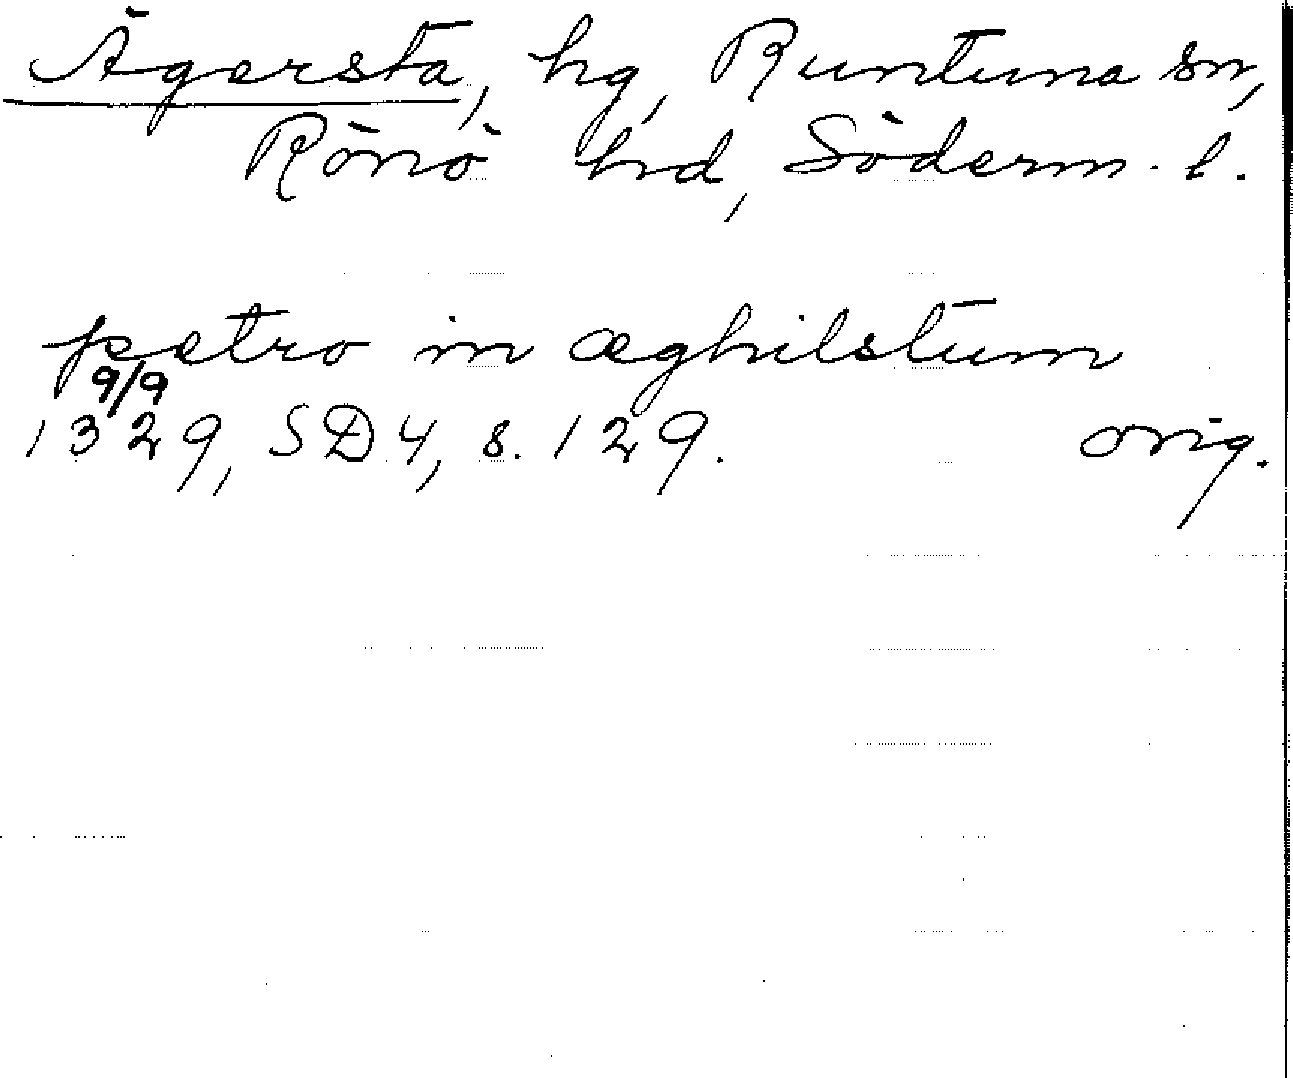 Ägersta, hg, Runtuna sn,
Rönö hd, Söderm. l.
petro in æghilstum
9/9
1329, SD 4, s. 129. orig.